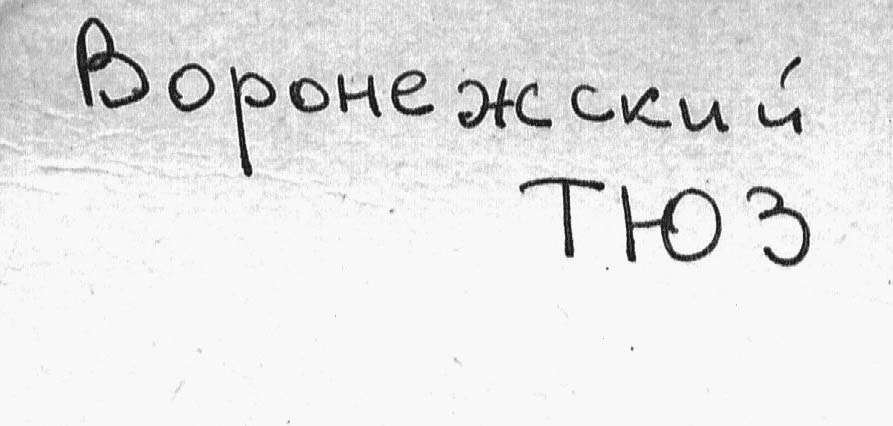 Воронежский
ТЮЗ